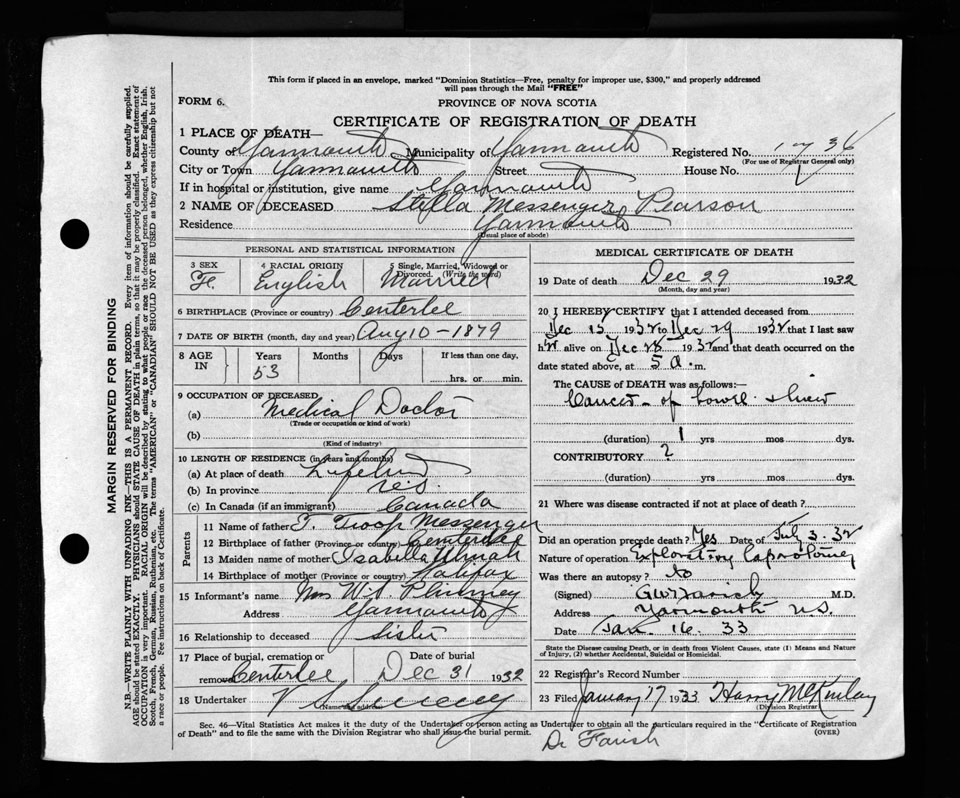 This form if placed in an envelope, marked "Dominion Statistics—Free, penalty for improper use, $300," and properly addressed
will pass through the Mail "FREE"
FORM 6.
PROVINCE OF NOVA SCOTIA
CERTIFICATE OF REGISTRATION OF DEATH
1 PLACE OF DEATH—
County of Yarmouth Municipality of Yarmouth Registered No. 1736
(For use of Registrar General only)
City or Town Yarmouth Street House No.
If in hospital or institution, give name Yarmouth
2 NAME OF DECEASED Stella Messenger Pearson
Residence Yarmouth
(Usual place of abode)
PERSONAL AND STATISTICAL INFORMATION
3 SEX F.
4 RACIAL ORIGIN English
5 Single, Married, Widowed or Divorced. (Write the word) Married
6 BIRTHPLACE (Province or country) Centerlee
7 DATE OF BIRTH (month, day and year) Aug 10 - 1879
8 AGE IN Years 53 Months Days If less than one day, hrs. or min.
9 OCCUPATION OF DECEASED
(a) Medical Doctor
(Trade or occupation or kind of work)
(b)
(Kind of industry)
10 LENGTH OF RESIDENCE (in years and months)
(a) At place of death
(b) In province N.S.
(c) In Canada (if an immigrant) Canada
Parents
11 Name of father T. Troop Messenger
12 Birthplace of father (Province or country) Centerlee
13 Maiden name of mother Isabella
14 Birthplace of mother (Province or country) Halifax
15 Informant's name Mrs W. A. Phinney
Address Yarmouth
16 Relationship to deceased Sister
17 Place of burial, cremation or removal Centerlee Date of burial Dec 31 1932
18 Undertaker V S Sweeny
(Name and address)
MEDICAL CERTIFICATE OF DEATH
19 Date of death Dec 29 1932
(Month, day and year)
20 I HEREBY CERTIFY that I attended deceased from
Dec 15 1932 to Dec 29 1932 that I last saw
her alive on Dec 28 1932 and that death occurred on the
date stated above, at 5 a. m.
The CAUSE OF DEATH was as follows:—
Cancer of bowel & liver
(duration) 1 yrs mos dys.
CONTRIBUTORY ?
(duration) yrs mos dys.
21 Where was disease contracted if not at place of death?
Did an operation precede death? Yes Date of July 3. 32
Nature of operation Exploratory Laparotomy
Was there an autopsy? No
(Signed) G.W.T. Farish M.D.
Address Yarmouth N.S.
Date Jan. 16. 33
State the Disease causing Death, or in death from Violent Causes, state (1) Means and Nature
of Injury, (2) whether Accidental, Suicidal or Homicidal.
22 Registrar's Record Number
23 Filed January 17 1933 Harry McKinlay
(Division Registrar)
Sec. 46—Vital Statistics Act makes it the duty of the Undertaker or person acting as Undertaker to obtain all the particulars required in the "Certificate of Registration
of Death" and to file the same with the Division Registrar who shall issue the burial permit.
(OVER)
Dr Farish
MARGIN RESERVED FOR BINDING
N.B.—WRITE PLAINLY WITH UNFADING INK—THIS IS A PERMANENT RECORD. Every item of information should be carefully supplied.
AGE should be stated EXACTLY. PHYSICIANS should STATE CAUSE OF DEATH in plain terms, so that it may be properly classified. Exact statement of
OCCUPATION is very important. RACIAL ORIGIN will be described by stating to what people or race the deceased person belonged, whether English, Irish,
Scotch, French, German, Russian, Ruthenian, etc. The terms "AMERICAN" or "CANADIAN" SHOULD NOT BE USED as they express citizenship but not
a race or people. See instructions on back of Certificate.